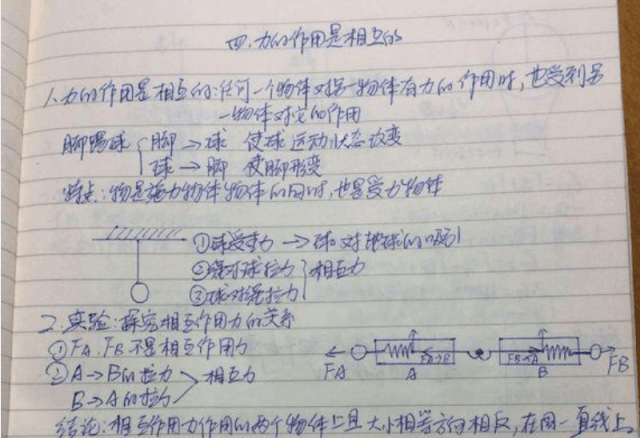 四.力的作用是相互的
1.力的作用是相互的:任何一个物体对另一物体有力的作用时,也受到另
一物体对它的作用
脚踢球 脚→球 使球运动状态改变
球→脚 使脚形变
特点:物是施力物体物体的同时,也是受力物体
①球受重力→球对地球的吸引
②绳对球拉力 相互力
③球对绳拉力
2.实验:探究相互作用力的关系
①FA.FB不是相互作用力
②A→B的拉力 相互力
B→A的拉力
FA FA→B A FB→A B FB
结论:相互作用力作用的两个物体上且大小相等方向相反,在同一直线上